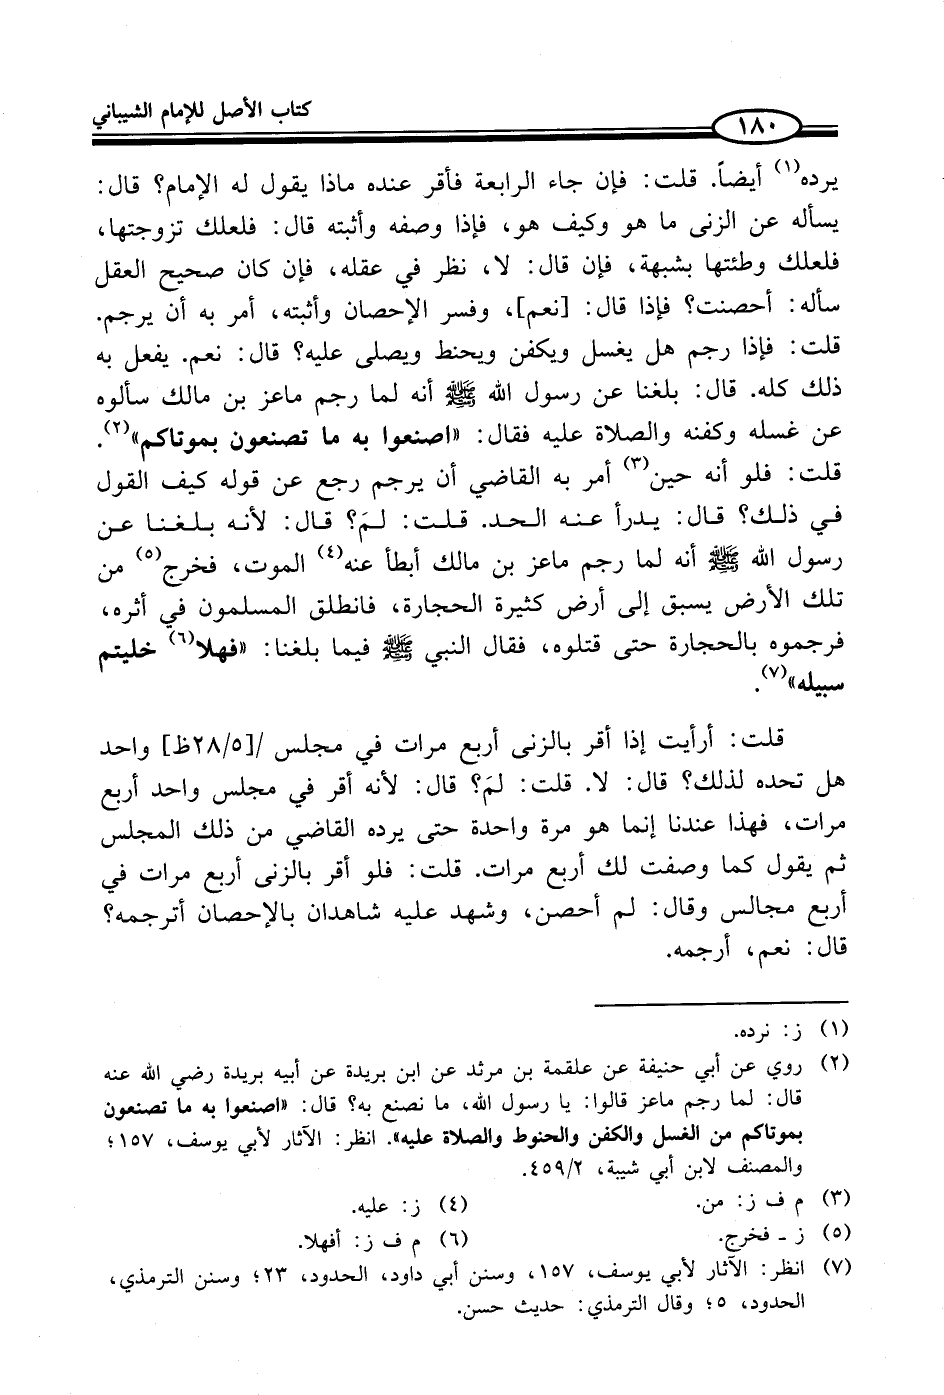 كتاب الأصل للإمام الشيباني
١٨٠
يرده(١) أيضاً. قلت: فإن جاء الرابعة فأقر عنده ماذا يقول له الإمام؟ قال:
يسأله عن الزنى ما هو وكيف هو، فإذا وصفه وأثبته قال: فلعلك تزوجتها،
فلعلك وطئتها بشبهة، فإن قال: لا، نظر في عقله، فإن كان صحيح العقل
سأله: أحصنت؟ فإذا قال: [نعم]، وفسر الإحصان وأثبته، أمر به أن يرجم.
قلت: فإذا رجم هل يغسل ويكفن ويحنط ويصلى عليه؟ قال: نعم. يفعل به
ذلك كله. قال: بلغنا عن رسول الله ﷺ أنه لما رجم ماعز بن مالك سألوه
عن غسله وكفنه والصلاة عليه فقال: «اصنعوا به ما تصنعون بموتاكم»(٢).
قلت: فلو أنه حين(٣) أمر به القاضي أن يرجم رجع عن قوله كيف القول
في ذلك؟ قال: يدرأ عنه الحد. قلت: لمَ؟ قال: لأنه بلغنا عن
رسول الله ﷺ أنه لما رجم ماعز بن مالك أبطأ عنه(٤) الموت، فخرج(٥) من
تلك الأرض يسبق إلى أرض كثيرة الحجارة، فانطلق المسلمون في أثره،
فرجموه بالحجارة حتى قتلوه، فقال النبي ﷺ فيما بلغنا: «فهلا(٦) خليتم
سبيله»(٧).
قلت: أرأيت إذا أقر بالزنى أربع مرات في مجلس /[٢٨/٥ظ] واحد
هل تحده لذلك؟ قال: لا. قلت: لمَ؟ قال: لأنه أقر في مجلس واحد أربع
مرات، فهذا عندنا إنما هو مرة واحدة حتى يرده القاضي من ذلك المجلس
ثم يقول كما وصفت لك أربع مرات. قلت: فلو أقر بالزنى أربع مرات في
أربع مجالس وقال: لم أحصن، وشهد عليه شاهدان بالإحصان أترجمه؟
قال: نعم، أرجمه.
(١) ز: نرده.
(٢) روي عن أبي حنيفة عن علقمة بن مرثد عن ابن بريدة عن أبيه بريدة رضي الله عنه
قال: لما رجم ماعز قالوا: يا رسول الله، ما نصنع به؟ قال: «اصنعوا به ما تصنعون
بموتاكم من الغسل والكفن والحنوط والصلاة عليه». انظر: الآثار لأبي يوسف، ١٥٧؛
والمصنف لابن أبي شيبة، ٤٥٩/٢.
(٣) م ف ز: من. (٤) ز: عليه.
(٥) ز ـ فخرج. (٦) م ف ز: أفهلا.
(٧) انظر: الآثار لأبي يوسف، ١٥٧، وسنن أبي داود، الحدود، ٢٣؛ وسنن الترمذي،
الحدود، ٥؛ وقال الترمذي: حديث حسن.